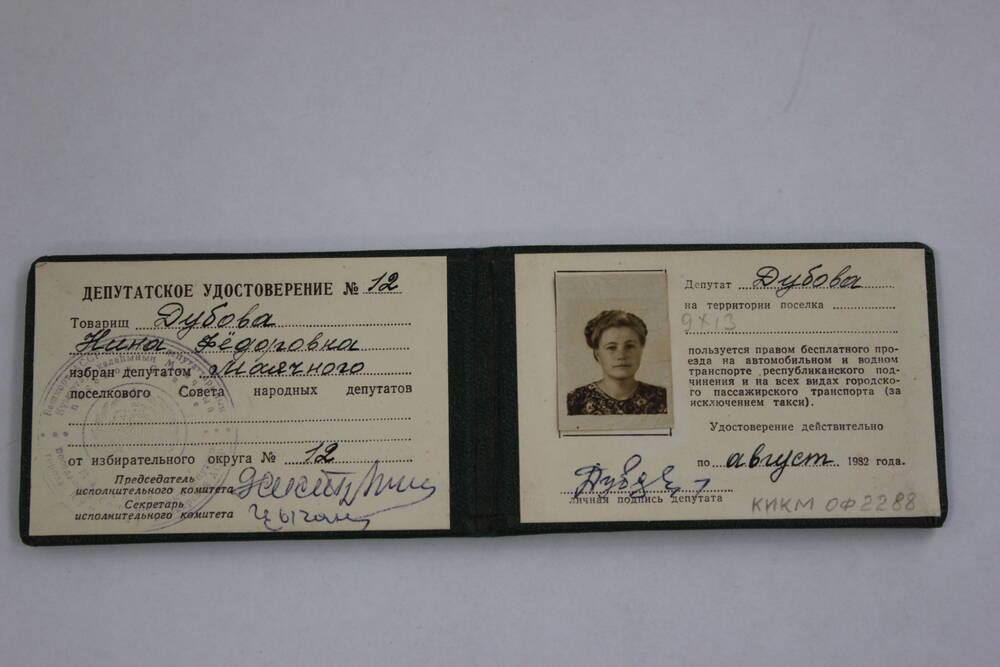 ДЕПУТАТСКОЕ УДОСТОВЕРЕНИЕ № 12
Товарищ Дубова
Нина Фёдоровна
избран депутатом Маячного
поселкового Совета народных депутатов
от избирательного округа № 12
Председатель
исполнительного комитета
Секретарь
исполнительного комитета
Депутат Дубова
на территории поселка
9х13
пользуется правом бесплатного про-
езда на автомобильном и водном
транспорте республиканского под-
чинения и на всех видах городско-
го пассажирского транспорта (за
исключением такси).
Удостоверение действительно
по август 1982 года.
личная подпись депутата
КИКМ ОФ2288